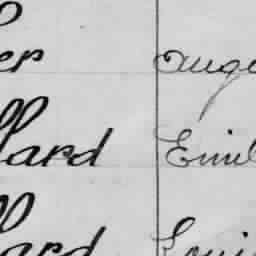 er Auge
llard Emil
llard Loui